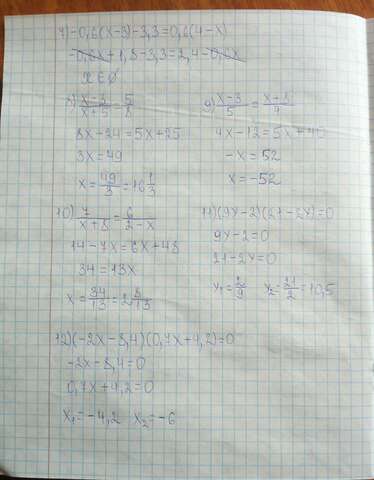 7) -0,6(x-3)-3,3=0,6(4-x)
-0,6x+1,8-3,3=2,4-0,6x
x∈∅
8) (x-3)/(x+5)=5/8
8x-24=5x+25
3x=49
x=49/3=16 1/3
9) (x-3)/5=(x+8)/4
4x-12=5x+40
-x=52
x=-52
10) 7/(x+8)=6/(2-x)
14-7x=6x+48
34=13x
x=34/13=2 8/13
11) (9y-2)(21-2y)=0
9y-2=0
21-2y=0
y₁=2/9 y₂=21/2=10,5
12) (-2x-8,4)(0,7x+4,2)=0
-2x-8,4=0
0,7x+4,2=0
x₁=-4,2 x₂=-6